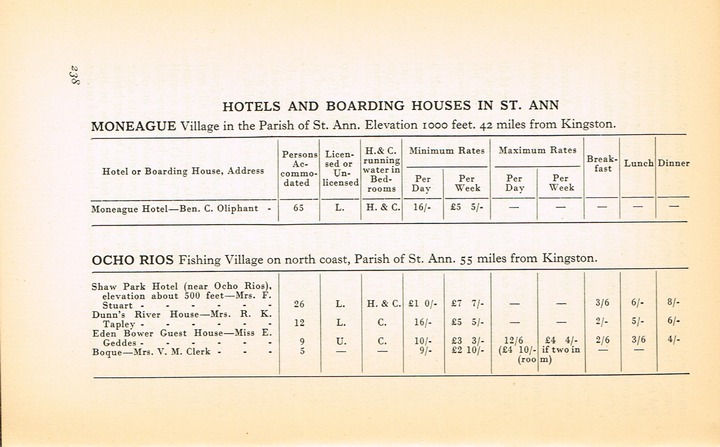 238
HOTELS AND BOARDING HOUSES IN ST. ANN
MONEAGUE Village in the Parish of St. Ann. Elevation 1000 feet. 42 miles from Kingston.
Hotel or Boarding House, Address | Persons Ac-commo-dated | Licen-sed or Un-licensed | H. & C. running water in Bed-rooms | Minimum Rates Per Day | Per Week | Maximum Rates Per Day | Per Week | Break-fast | Lunch | Dinner
Moneague Hotel—Ben. C. Oliphant - 65 L. H. & C. 16/- £5 5/- — — — — —
OCHO RIOS Fishing Village on north coast, Parish of St. Ann. 55 miles from Kingston.
Shaw Park Hotel (near Ocho Rios),
elevation about 500 feet—Mrs. F.
Stuart - - - - - 26 L. H. & C. £1 0/- £7 7/- — — 3/6 6/- 8/-
Dunn's River House—Mrs. R. K.
Tapley - - - - - 12 L. C. 16/- £5 5/- — — 2/- 5/- 6/-
Eden Bower Guest House—Miss E.
Geddes - - - - - 9 U. C. 10/- £3 3/- 12/6 £4 4/- 2/6 3/6 4/-
Boque—Mrs. V. M. Clerk - - - 5 — — 9/- £2 10/- (£4 10/- if two in — —
(room)